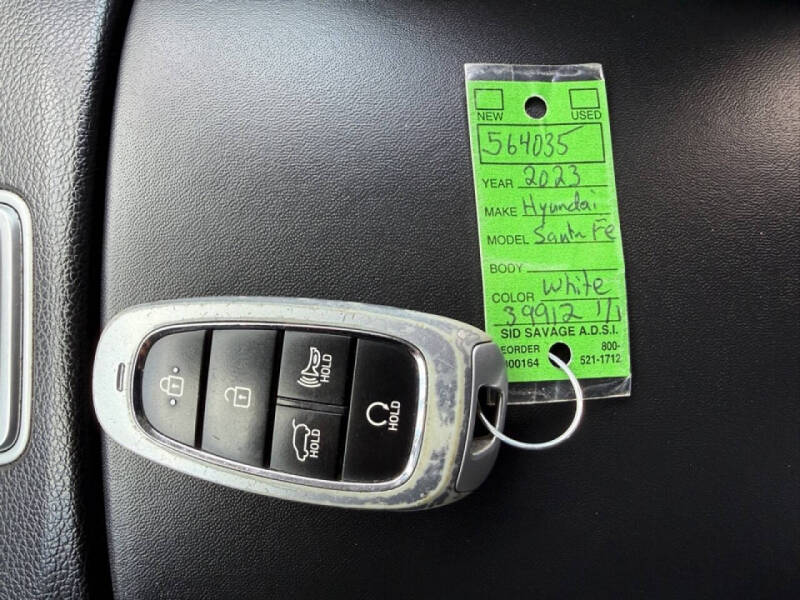 NEW USED
564035
YEAR 2023
MAKE Hyundai
MODEL Santa Fe
BODY
COLOR White
39912 1/1
SID SAVAGE A.D.S.I.
EORDER 800-
00164 521-1712
HOLD
HOLD
HOLD